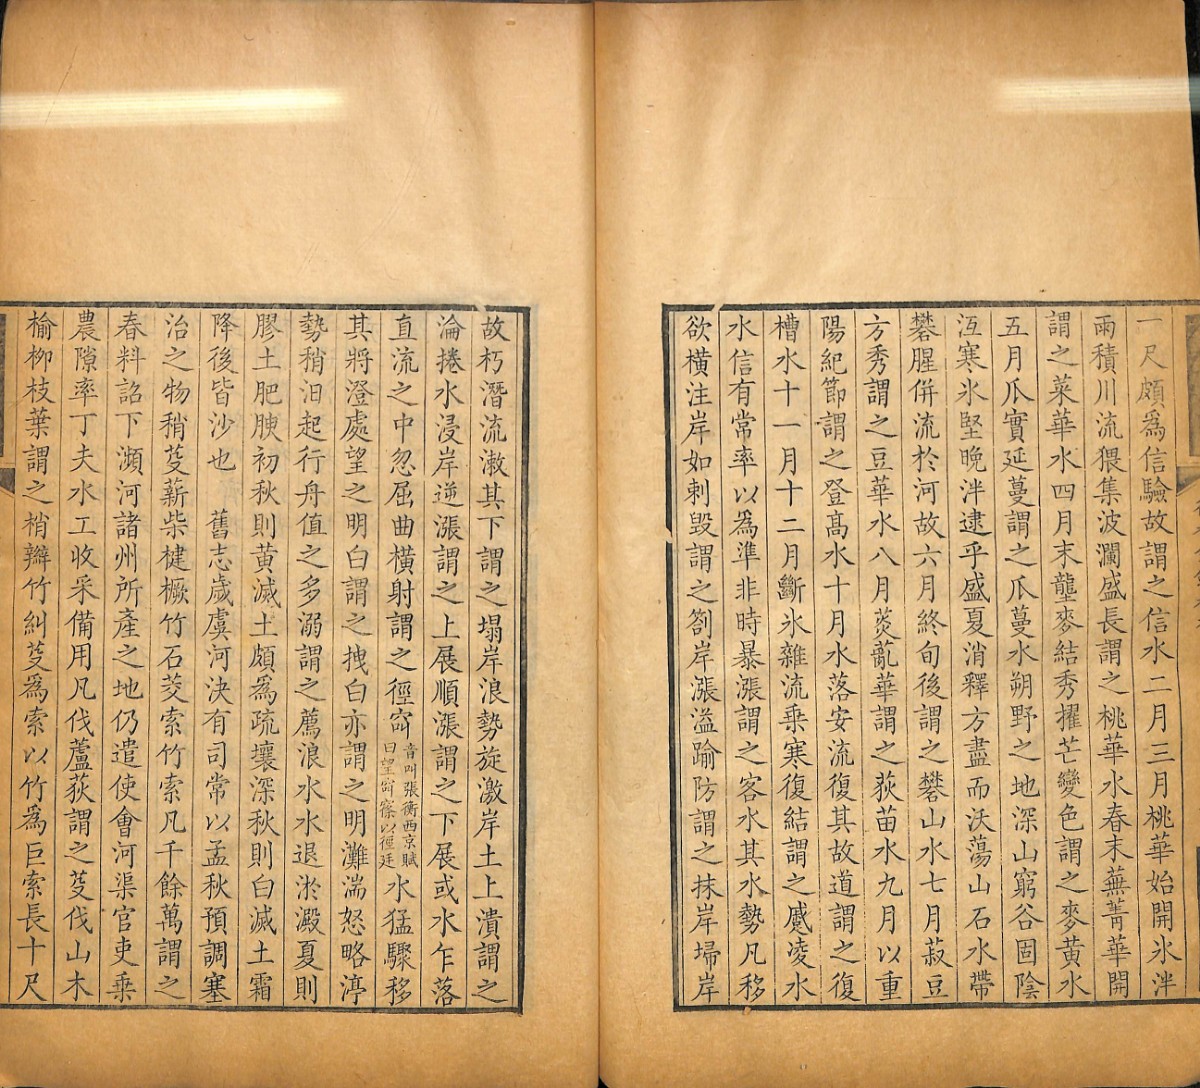 一尺頗爲信驗故謂之信水二月三月桃華始開氷泮
雨積川流猥集波瀾盛長謂之桃華水春末蕪菁華開
謂之菜華水四月末壟麥結秀擢芒變色謂之麥黃水
五月瓜實延蔓謂之瓜蔓水朔野之地深山窮谷固陰
沍寒氷堅晚泮逮乎盛夏消釋方盡而沃蕩山石水帶
礬腥併流於河故六月終旬後謂之礬山水七月菽豆
方秀謂之豆華水八月菼薍華謂之荻苗水九月以重
陽紀節謂之登高水十月水落安流復其故道謂之復
槽水十一月十二月斷氷雜流乘寒復結謂之蹙凌水
水信有常率以爲準非時暴漲謂之客水其水勢凡移
欲橫注岸如刺毀謂之劄岸漲溢踰防謂之抹岸埽岸
故朽潛流漱其下謂之塌岸浪勢旋激岸土上潰謂之
淪捲水浸岸逆漲謂之上展順漲謂之下展或水乍落
直流之中忽屈曲橫射謂之徑㓉音叫張衡西京賦曰望㓉窱以徑廷水猛驟移
其將澄處望之明白謂之拽白亦謂之明灘湍怒略渟
勢稍汨起行舟值之多溺謂之薦浪水水退淤澱夏則
膠土肥腴初秋則黃滅土頗爲疏壤深秋則白滅土霜
降後皆沙也　舊志歲虞河決有司常以孟秋預調塞
治之物稍芟薪柴楗橛竹石茭索竹索凡千餘萬謂之
春料詔下瀕河諸州所產之地仍遣使會河渠官吏乘
農隙率丁夫水工收采備用凡伐蘆荻謂之芟伐山木
榆柳枝葉謂之梢辮竹糾芟爲索以竹爲巨索長十尺